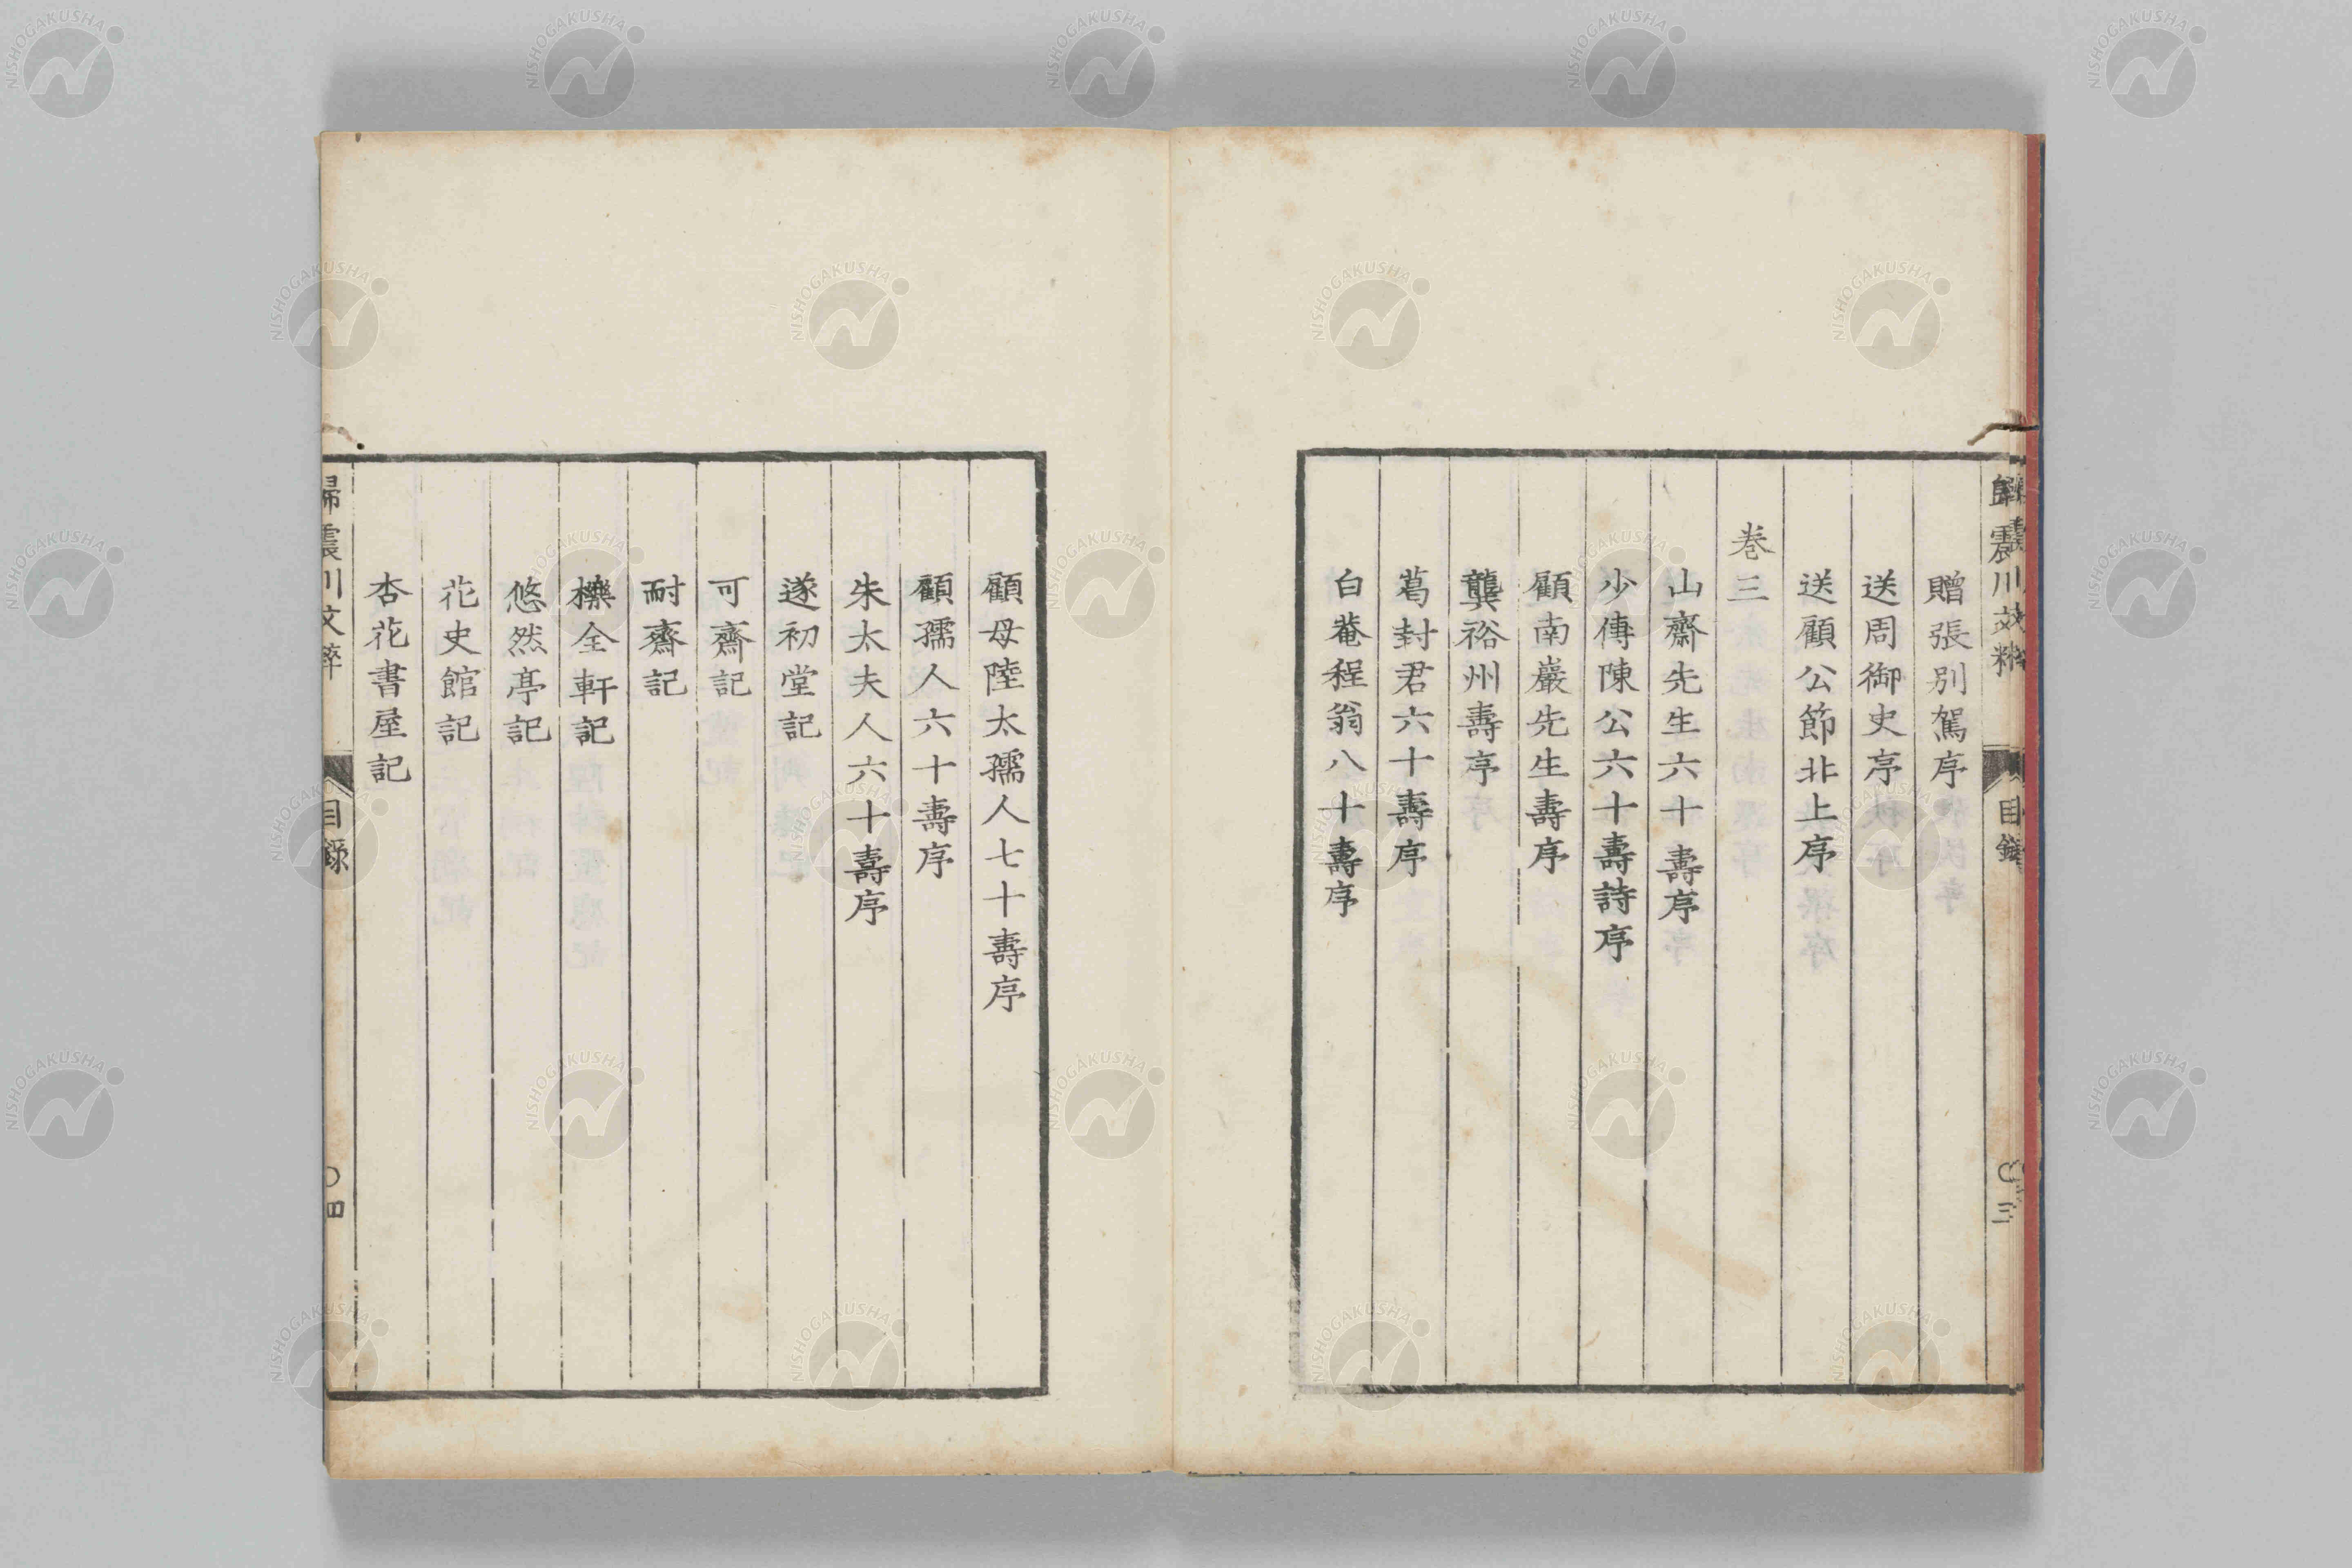 歸震川文粹 目錄 ○三
贈張別駕序
送周御史序
送顧公節北上序
卷三
山齋先生六十壽序
少傅陳公六十壽詩序
顧南巖先生壽序
龔裕州壽序
葛封君六十壽序
白菴程翁八十壽序
顧母陸太孺人七十壽序
顧孺人六十壽序
朱太夫人六十壽序
遂初堂記
可齋記
耐齋記
櫟全軒記
悠然亭記
花史館記
杏花書屋記
歸震川文粹 目錄 ○四
NISHOGAKUSHA